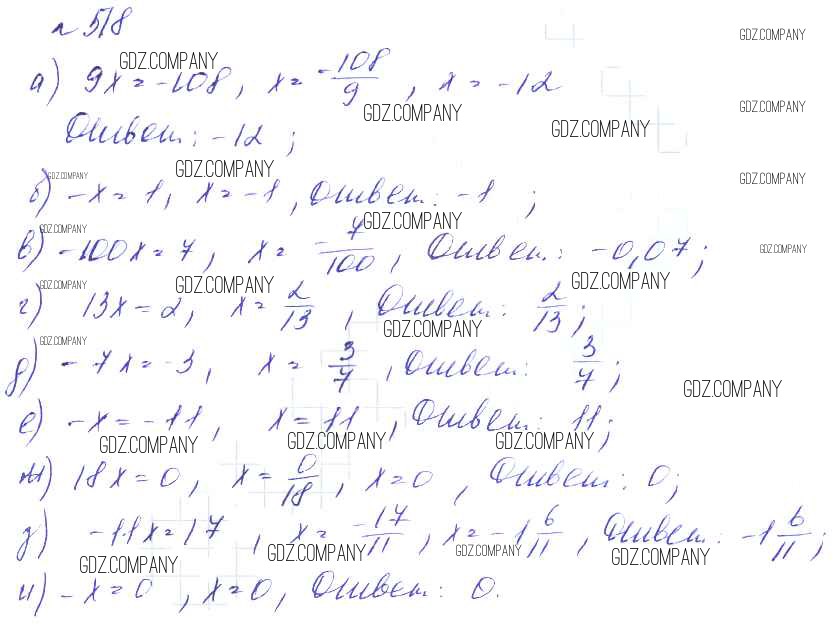 № 518
GDZ.COMPANY GDZ.COMPANY
а) 9x = -108, x = -108/9, x = -12
GDZ.COMPANY GDZ.COMPANY GDZ.COMPANY
Ответ: -12;
GDZ.COMPANY GDZ.COMPANY GDZ.COMPANY
б) -x = 1, x = -1, Ответ: -1;
GDZ.COMPANY GDZ.COMPANY GDZ.COMPANY
в) -100x = 7, x = -7/100, Ответ: -0,07;
GDZ.COMPANY GDZ.COMPANY GDZ.COMPANY
г) 13x = 2, x = 2/13, Ответ: 2/13;
GDZ.COMPANY GDZ.COMPANY
д) -7x = -3, x = 3/7, Ответ: 3/7;
GDZ.COMPANY
е) -x = -11, x = 11, Ответ: 11;
GDZ.COMPANY GDZ.COMPANY GDZ.COMPANY
ж) 18x = 0, x = 0/18, x = 0, Ответ: 0;
з) -11x = 17, x = -17/11, x = -1 6/11, Ответ: -1 6/11;
GDZ.COMPANY GDZ.COMPANY GDZ.COMPANY GDZ.COMPANY
и) -x = 0, x = 0, Ответ: 0.